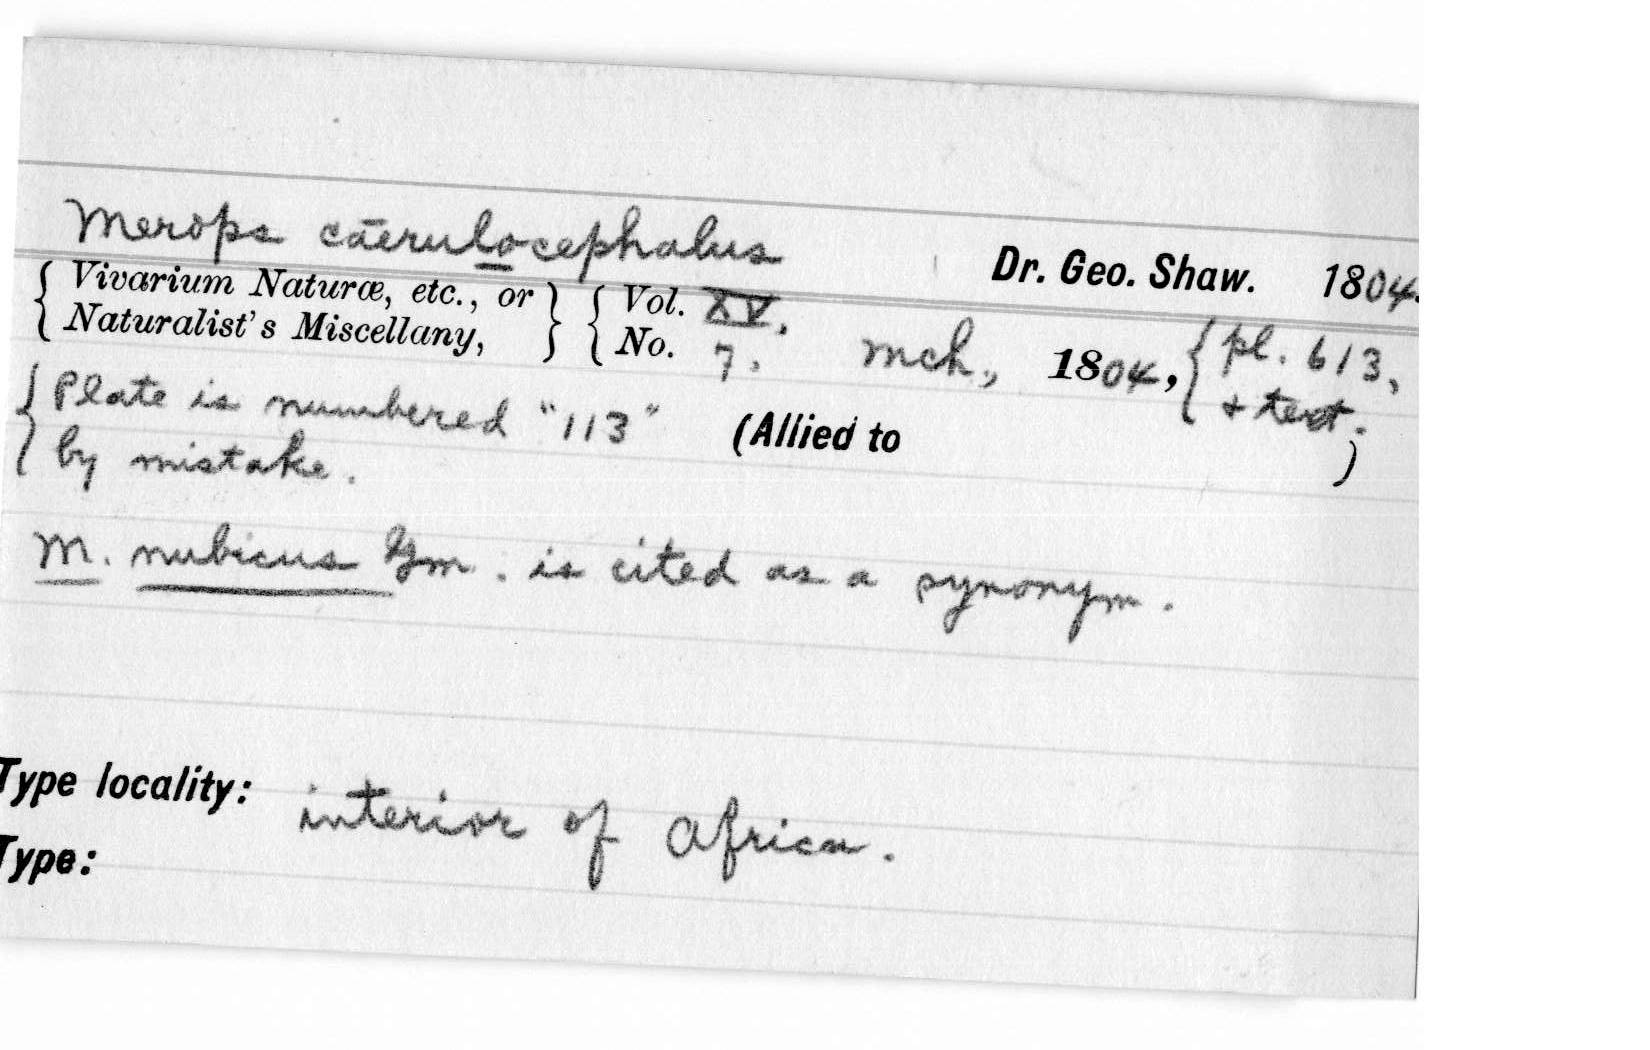 Merops cāerulocephalus Dr. Geo. Shaw. 1804.
{ Vivarium Naturæ, etc., or } { Vol. XV.
{ Naturalist's Miscellany, } { No. 7. Mch., 1804, { pl. 613, + text.
{ Plate is numbered "113" (Allied to )
{ by mistake.
M. nubicus Gm. is cited as a synonym.
Type locality: interior of Africa.
Type: